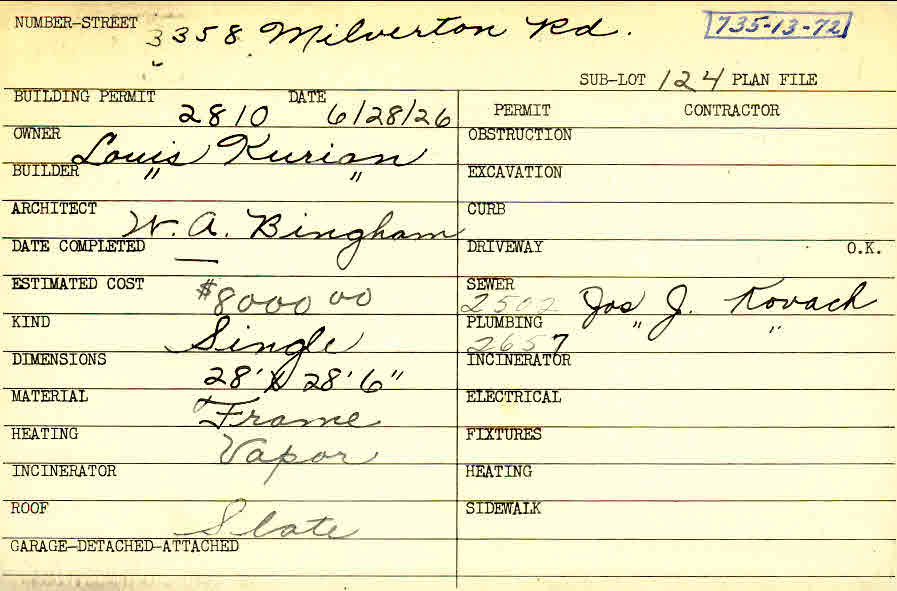 NUMBER-STREET 3358 Milverton Rd. 735-13-72
SUB-LOT 124 PLAN FILE
BUILDING PERMIT 2810 DATE 6/28/26
PERMIT CONTRACTOR
OWNER Louis Kurian
OBSTRUCTION
BUILDER " "
EXCAVATION
ARCHITECT W. A. Bingham
CURB
DATE COMPLETED —
DRIVEWAY O.K.
ESTIMATED COST $8000 00
SEWER 2502 Jos J. Kovach
KIND Single
PLUMBING 2657 " "
DIMENSIONS 28' x 28' 6"
INCINERATOR
MATERIAL Frame
ELECTRICAL
HEATING Vapor
FIXTURES
INCINERATOR
HEATING
ROOF Slate
SIDEWALK
GARAGE-DETACHED-ATTACHED